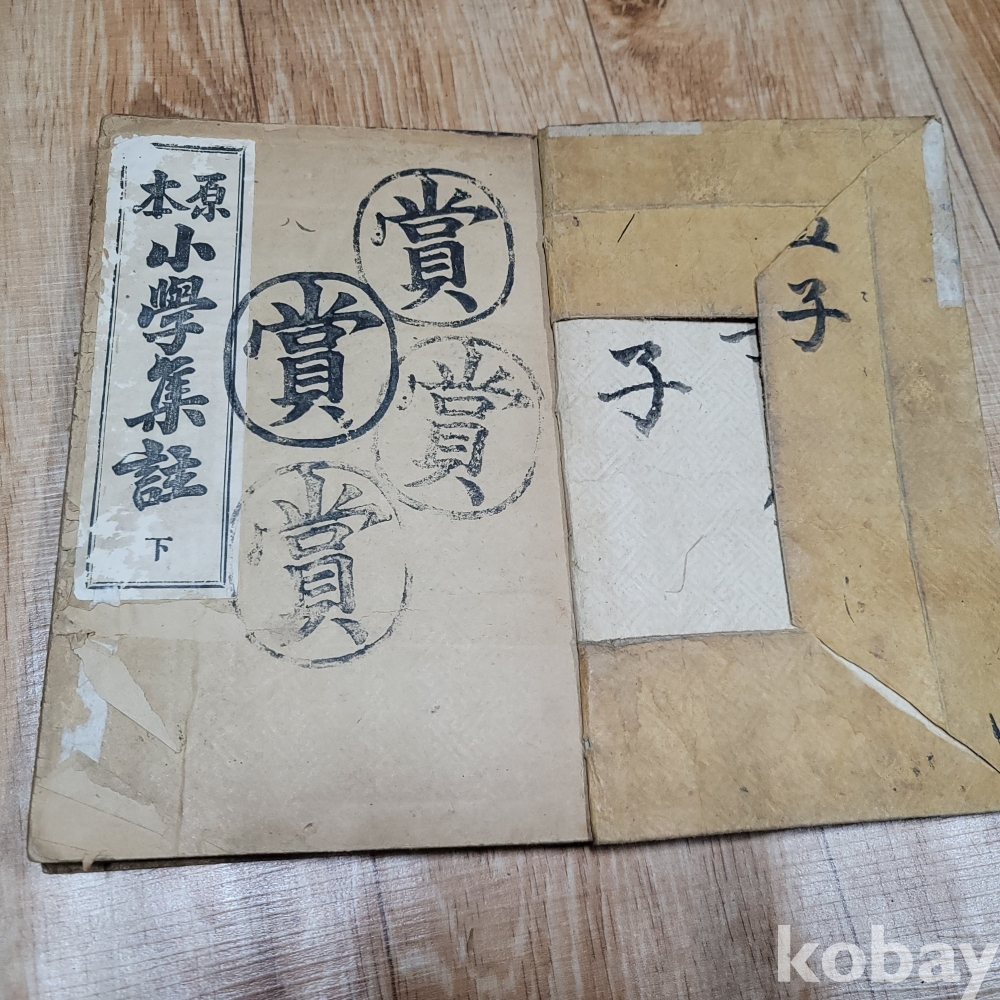 原本
小學集註
下
賞
賞
賞
賞
子
子
kobay